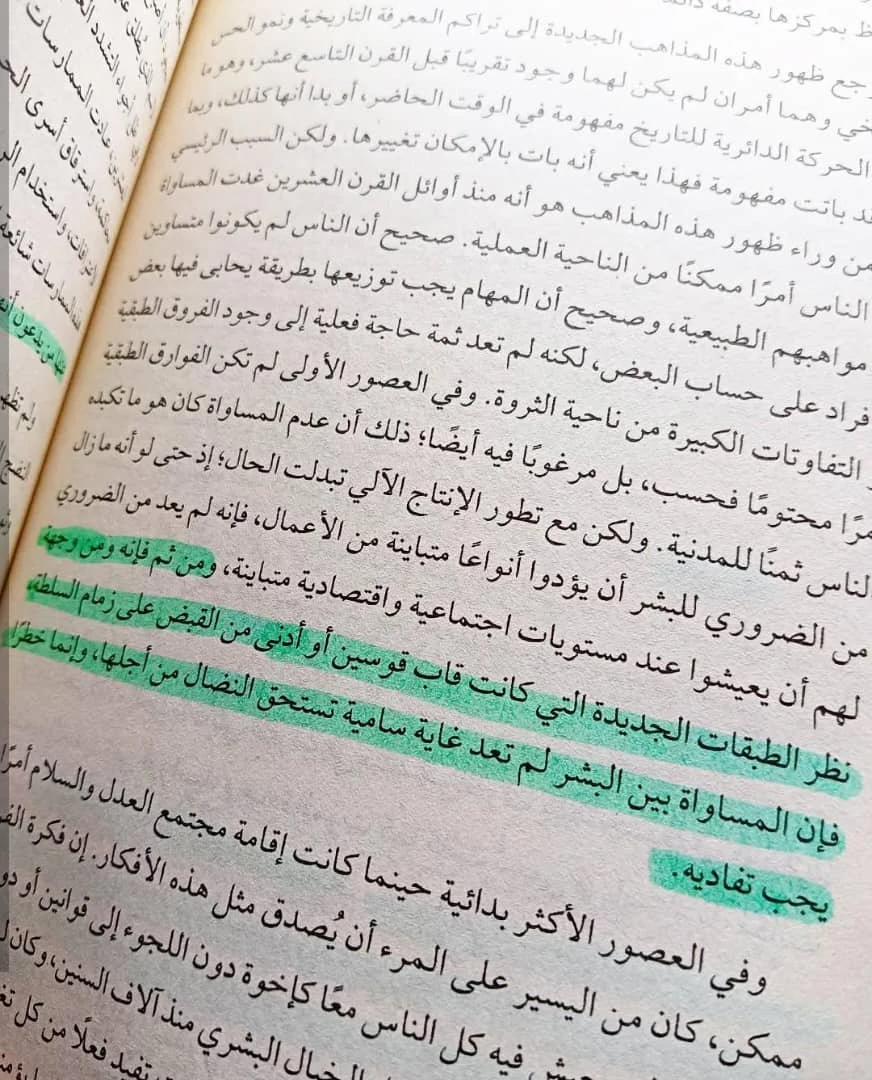 ظ بمركزها بصفة
رجع ظهور هذه المذاهب الجديدة إلى تراكم المعرفة التاريخية ونمو الحس
خي وهما أمران لم يكن لهما وجود تقريبًا قبل القرن التاسع عشر، وهو ما
الحركة الدائرية للتاريخ مفهومة في الوقت الحاضر، أو بدا أنها كذلك، وبما
باتت مفهومة فهذا يعني أنه بات بالإمكان تغييرها. ولكن السبب الرئيسي
من وراء ظهور هذه المذاهب هو أنه منذ أوائل القرن العشرين غدت المساواة
الناس أمرًا ممكنًا من الناحية العملية. صحيح أن الناس لم يكونوا متساوين
مواهبهم الطبيعية، وصحيح أن المهام يجب توزيعها بطريقة يحابى فيها بعض
فراد على حساب البعض، لكنه لم تعد ثمة حاجة فعلية إلى وجود الفروق الطبقية
التفاوتات الكبيرة من ناحية الثروة. وفي العصور الأولى لم تكن الفوارق الطبقية
مرًا محتومًا فحسب، بل مرغوبًا فيه أيضًا؛ ذلك أن عدم المساواة كان هو ما تكبده
الناس ثمنًا للمدنية. ولكن مع تطور الإنتاج الآلي تبدلت الحال؛ إذ حتى لو أنه ما زال
من الضروري للبشر أن يؤدوا أنواعًا متباينة من الأعمال، فإنه لم يعد من الضروري
لهم أن يعيشوا عند مستويات اجتماعية واقتصادية متباينة، ومن ثم فإنه ومن وجهة
نظر الطبقات الجديدة التي كانت قاب قوسين أو أدنى من القبض على زمام السلطة،
فإن المساواة بين البشر لم تعد غاية سامية تستحق النضال من أجلها، وإنما خطرًا
يجب تفاديه.
وفي العصور الأكثر بدائية حينما كانت إقامة مجتمع العدل والسلام أمرًا
ممكن، كان من اليسير على المرء أن يُصدق مثل هذه الأفكار. إن فكرة
فيه كل الناس معًا كإخوة دون اللجوء إلى قوانين أو
الخيال البشري منذ آلاف السنين، وكان
تفيد فعلًا من كل